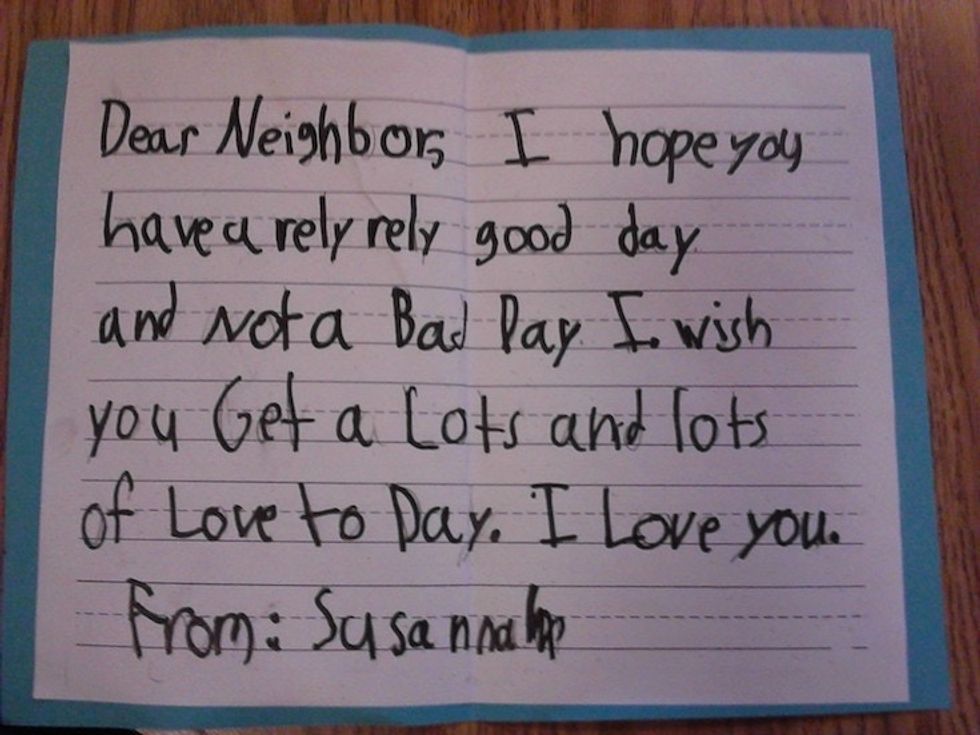 Dear Neighbors, I hope you
have a rely rely good day
and Not a Bad Day. I. wish
you Get a Lots and lots
of Love to Day. I Love you.
From: Susannah